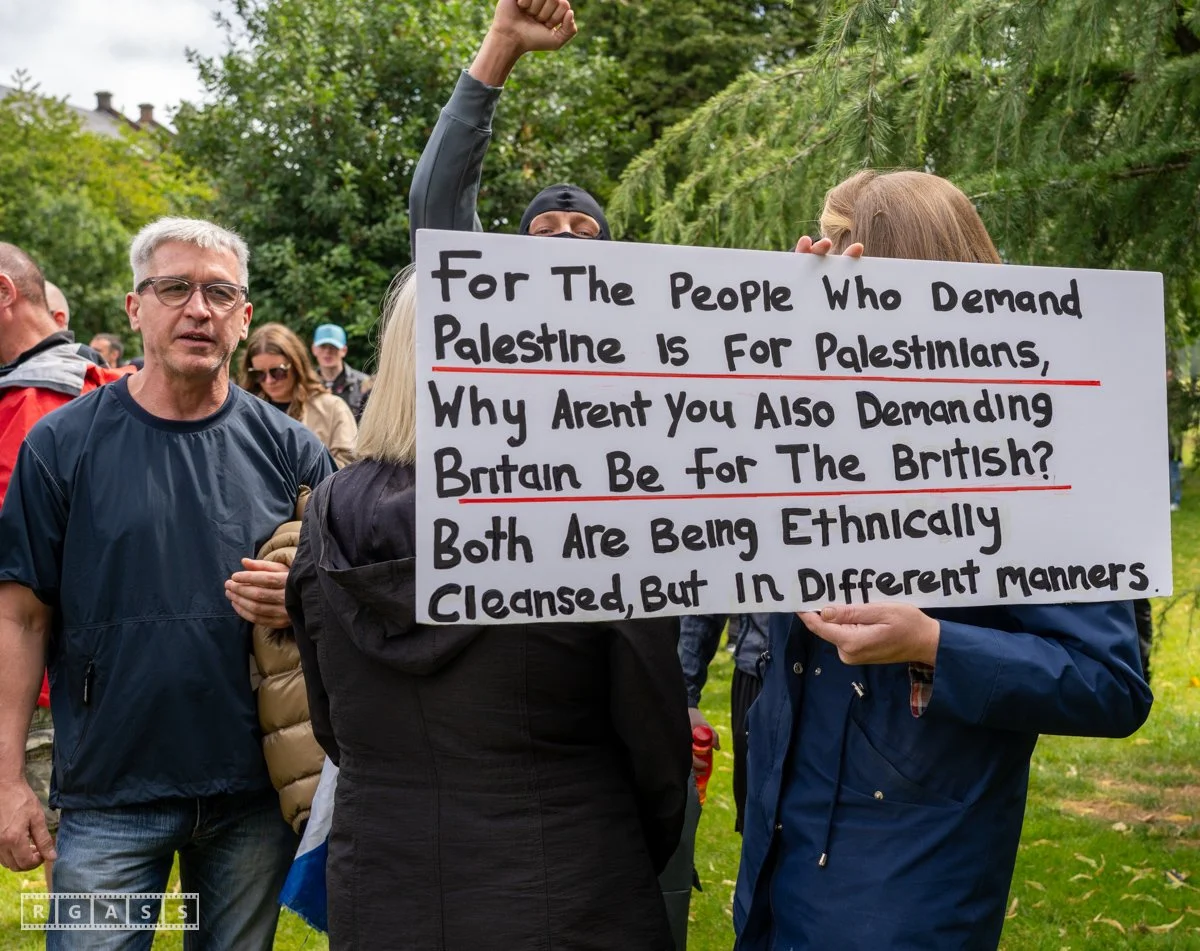 For The People Who Demand
Palestine is For Palestinians,
Why Arent You Also Demanding
Britain Be For The British?
Both Are Being Ethnically
Cleansed, But In Different manners.
RGASS